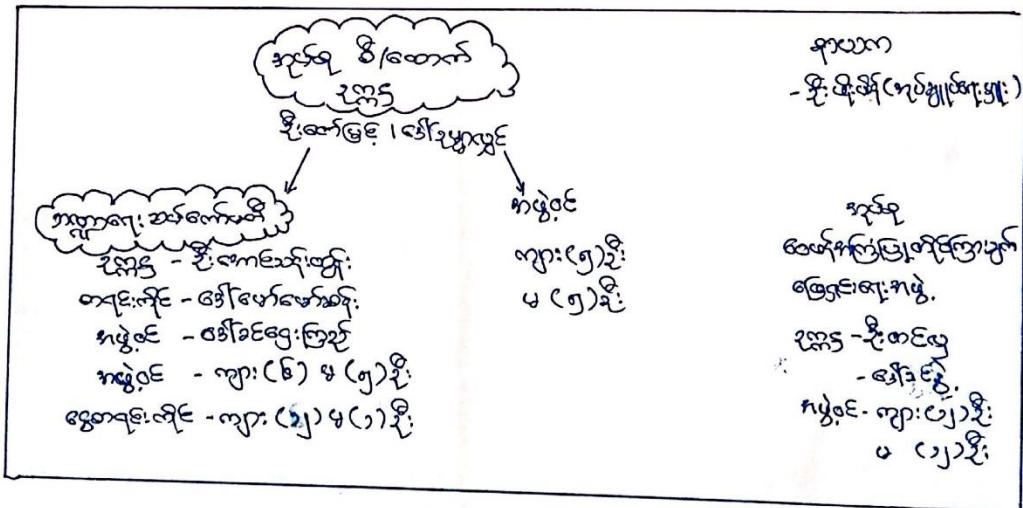 အုပ်စု စီ/ထောက်
ဥက္ကဋ္ဌ
ဦးဇော်မြင့် ၊ ဒေါ်ဥမ္မာလွင်
ဘဏ္ဍာရေး ဆပ်ကော်မတီ
ဥက္ကဋ္ဌ - ဦးကောင်းသန်းထွန်း
စာရင်းကိုင် - ဒေါ်မော်မော်ဆန်း
အဖွဲ့ဝင် - ဒေါ်ခင်ဌေးကြည်
အဖွဲ့ဝင် - ကျား (၆) မ (၅) ဦး
ငွေစာရင်းကိုင် - ကျား (၁၂) မ (၁) ဦး
အဖွဲ့ဝင်
ကျား (၅) ဦး
မ (၅) ဦး
နာယက
- ဦး (အုပ်ချုပ်ရေးမှူး)
အုပ်စု
ဝေဖန်အကြံပြုတိုင်ကြားချက်
ဖြေရှင်းရေးအဖွဲ့
ဥက္ကဋ္ဌ - ဦးတင်လှ
- ဒေါ်ခင်
အဖွဲ့ဝင် - ကျား (၁၂) ဦး
မ (၁၂) ဦး